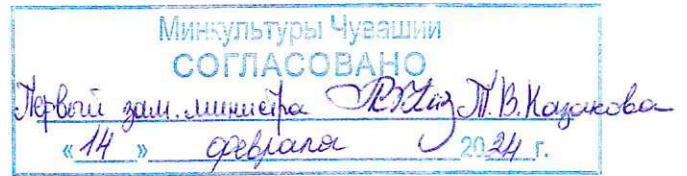 Минкультуры Чувашии
СОГЛАСОВАНО
Первый зам. министра Т.В. Казакова
«14» февраля 2024 г.